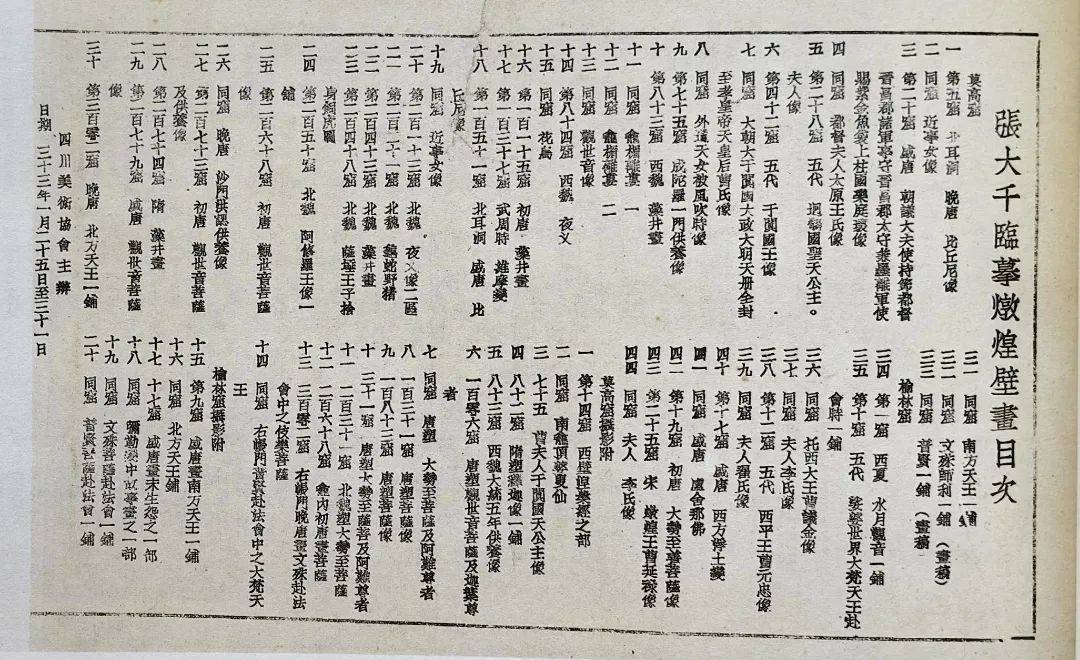 張大千臨摹燉煌壁畫目次
莫高窟
一 第五窟 北耳洞 晚唐 比丘尼像
二 同窟 近事女像
三 第二十窟 盛唐 朝議大夫使持節都督
晉昌郡諸軍事守晉昌郡太守兼墨離軍使
賜紫金魚袋上柱國樂庭瓌像
四 同窟 都督夫人太原王氏像
五 第二十八窟 五代 迴鶻國聖天公主。
夫人像
六 第四十二窟 五代 于闐國王像
七 同窟 大朝大于闐國大政大明天册全封
至孝皇帝天皇后曹氏像
八 同窟 外道天女被風吹時像
九 第七十五窟 成陀羅一門供養像
十 第八十三窟 西魏 藻井畫
十一 同窟 龕楣雜畫 一
十二 同窟 龕楣雜畫 二
十三 同窟 觀世音像
十四 第八十四窟 西魏 夜叉
十五 同窟 花鳥
十六 第一百十五窟 初唐 藻井畫
十七 第一百三十七窟 武周時 維摩變
十八 第一百五十一窟 北耳洞 盛唐 比
丘尼像
十九 同窟 近事女像
二十 第二百十三窟 北魏 夜叉像二區
二一 第二百二十一窟 北魏 龜蛇野豬
二二 第二百四十三窟 北魏 藻井畫
二三 第二百四十八窟 北魏 薩埵王子捨
身飼虎圖
二四 第二百五十窟 北魏 阿修羅王像一
鋪
二五 第二百六十八窟 初唐 觀世音菩薩
像
二六 同窟 晚唐 沙門洪認供養像
二七 第二百七十三窟 初唐 觀世音菩薩
及供養像
二八 第二百七十四窟 隋 藻井畫
二九 第二百七十九窟 盛唐 觀世音菩薩
像
三十 第三百零二窟 晚唐 北方天王一鋪
三一 同窟 南方天王一鋪
三二 同窟 文殊師利一鋪(畫稿)
三三 同窟 普賢一鋪(畫稿)
榆林窟
三四 第一窟 西夏 水月觀音一鋪
三五 第十窟 五代 娑婆世界大梵天王赴
會時一鋪
三六 同窟 托西大王曹議金像
三七 同窟 夫人李氏像
三八 第十二窟 五代 西平王曹元忠像
三九 同窟 夫人翟氏像
四十 第十七窟 盛唐 西方淨土變
四一 同窟 盛唐 盧舍那佛
四二 第十九窟 初唐 大勢至菩薩像
四三 第二十五窟 宋 燉煌王曹延祿像
四四 同窟 夫人 李氏像
莫高窟攝影附
一 第十四窟 西壁涅槃經之部
二 同窟 南龕頂藥叉仙
三 七十五 曹夫人于闐國天公主像
四 八十二窟 隋塑釋迦像一鋪
五 八十三窟 西魏大統五年供養像
六 一百零六窟 唐塑觀世音菩薩及迦葉尊
者
七 同窟 唐塑 大勢至菩薩及阿難尊者
八 一百三十一窟 唐塑九像
九 一百八十二窟 唐塑九像
十 三十一窟 唐塑大勢至菩薩及阿難尊者
十一 二百三十一 北魏塑大勢至菩薩
十二 二百六十八窟 龕內初唐畫菩薩
十三 三百零二窟 右關門晚唐畫文殊赴法
會中之伎樂菩薩
十四 同窟 右關門普賢赴法會中之大梵天
王
榆林窟攝影附
十五 第九窟 盛唐畫南方天王一鋪
十六 同窟 北方天王鋪
十七 十七窟 盛唐畫未生怨之一部
十八 同窟 彌勒變中故事畫之一部
十九 同窟 文殊菩薩赴法會一鋪
二十 同窟 普賢菩薩赴法會一鋪
四川美術協會主辦
日期 三十三年一月二十五日至三十一日